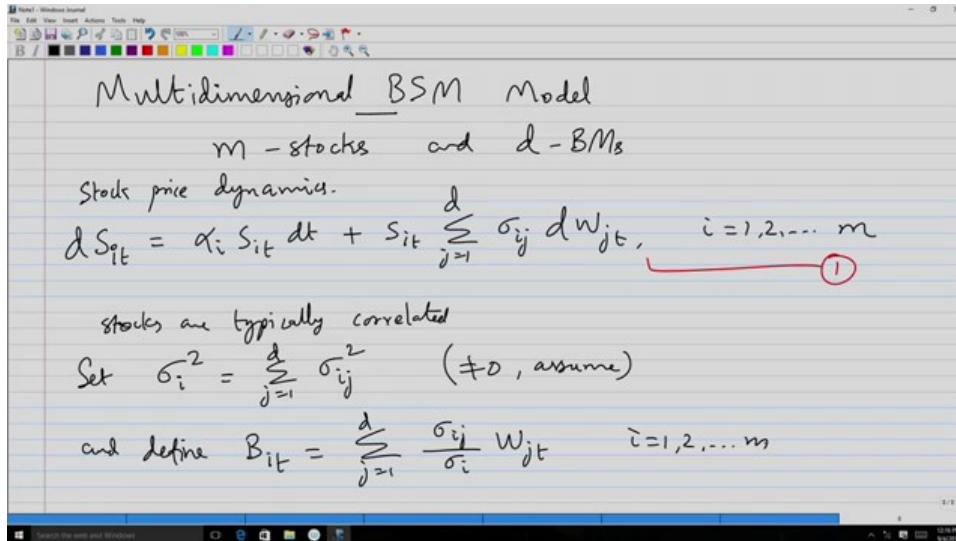 Note1 - Windows Journal
File Edit View Insert Actions Tools Help
Multidimensional BSM Model
m - stocks and d - BMs
Stock price dynamics.
dS_{it} = α_i S_{it} dt + S_{it} \sum_{j=1}^{d} σ_{ij} dW_{jt}, i = 1, 2, ... m
①
stocks are typically correlated
Set σ_i^2 = \sum_{j=1}^{d} σ_{ij}^2 (≠0, assume)
and define B_{it} = \sum_{j=1}^{d} \frac{σ_{ij}}{σ_i} W_{jt} i = 1, 2, ... m
Search the web and Windows